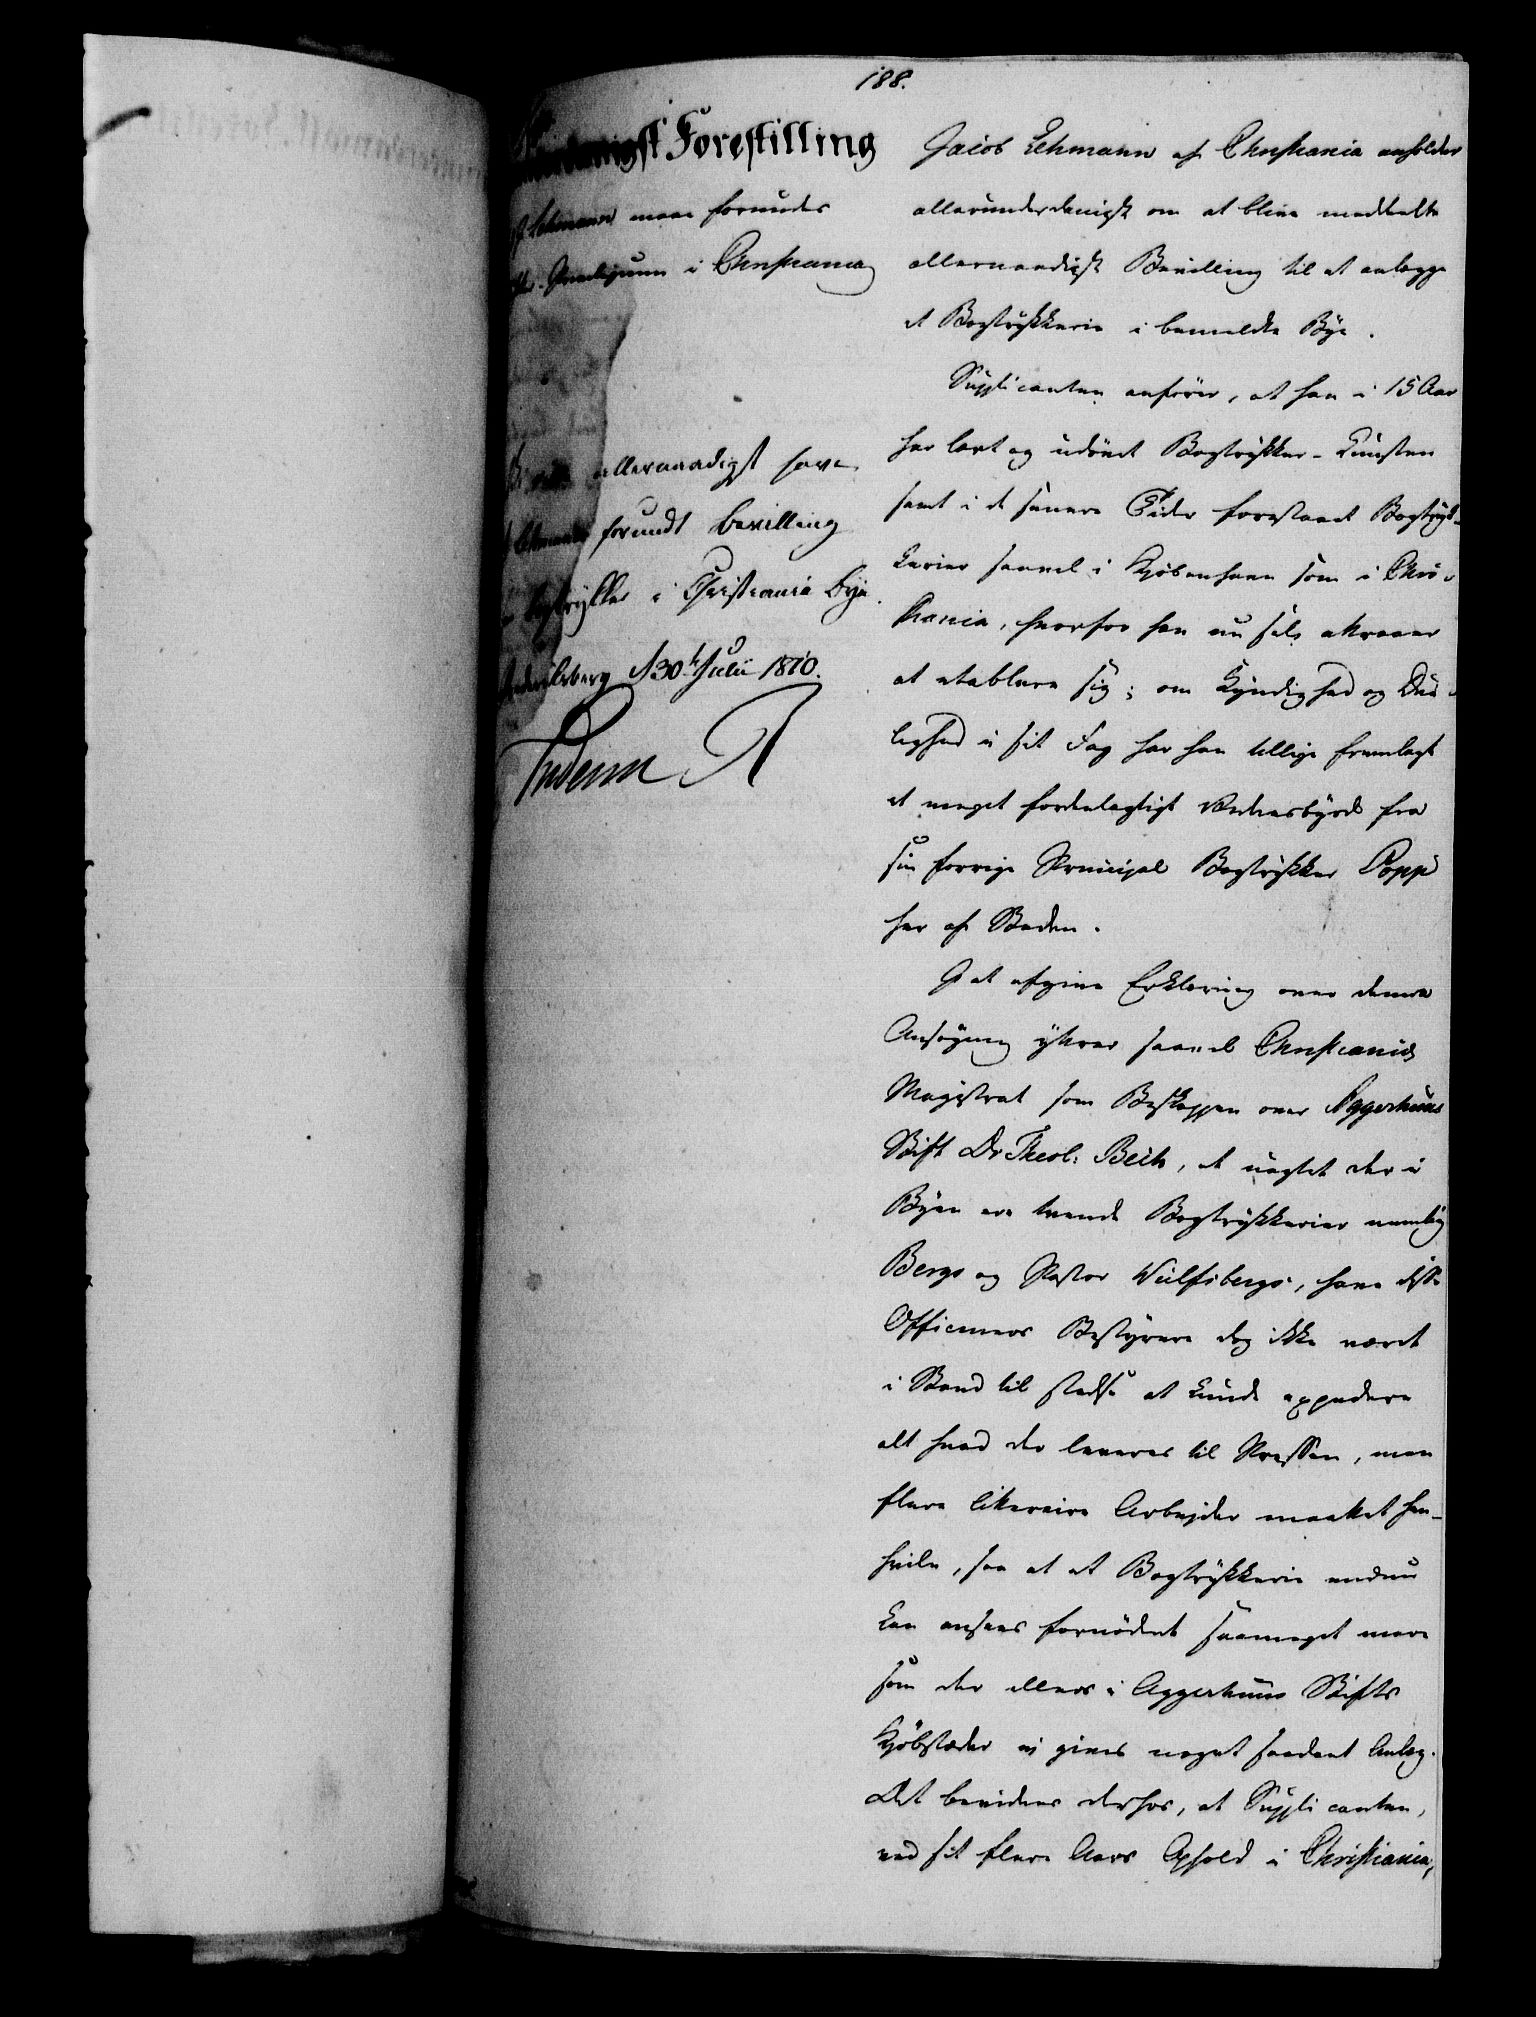 188.
Forestilling
Lehmann maae forundes
i Christiania
allernaadigst have
Lehmann forundt bevilling
Bogtrykker i Christiania Bye.
Frederiksberg d 30te Julii 1810.
Frederik R
Jacob Lehmann af Christiania anholder
allerunderdanigst om at blive meddeelt
allernaadigst Bevilling til at anlægge
et Bogtrykkerie i bemeldte Bye.
Supplicanten anfører, at han i 15 Aar
har lært og udøvet Bogtrykker-Kunsten
samt i de senere Tider forestaaet Bogtryk-
kerier saavel i Kjøbenhavn som i Chri-
stiania, hvorfor han nu selv attraaer
at etablere sig; om Kyndighed og Due-
lighed i sit Fag har han tillige fremlagt
et meget fordeelagtigt Vidnesbyrd fra
sin forrige Principal Bogtrykker Popp
her af Staden.
I at afgive Erklæring over denne
Ansøgning yttrer saavel Christiania
Magistrat som Biskoppen over Aggerhuus
Stift Dr Theol: Bech, at uagtet der i
Byen ere tvende Bogtrykkerier nemlig
Bergs og Pastor Wulfsbergs, have disse
Officiners Bestyrere dog ikke været
i Stand til stedse at kunde expedere
alt hvad der leveres til Pressen, men
flere literaire Arbejder maattet hen-
hvile, saa at et Bogtrykkerie endnu
kan ansees fornødent saameget mere
som der ellers i Aggerhuus Stifts
Kjøbstæder ej gives noget saadant Anlæg.
Det bevidnes derhos, at Supplicanten,
ved sit flere Aars Ophold i Christiania,